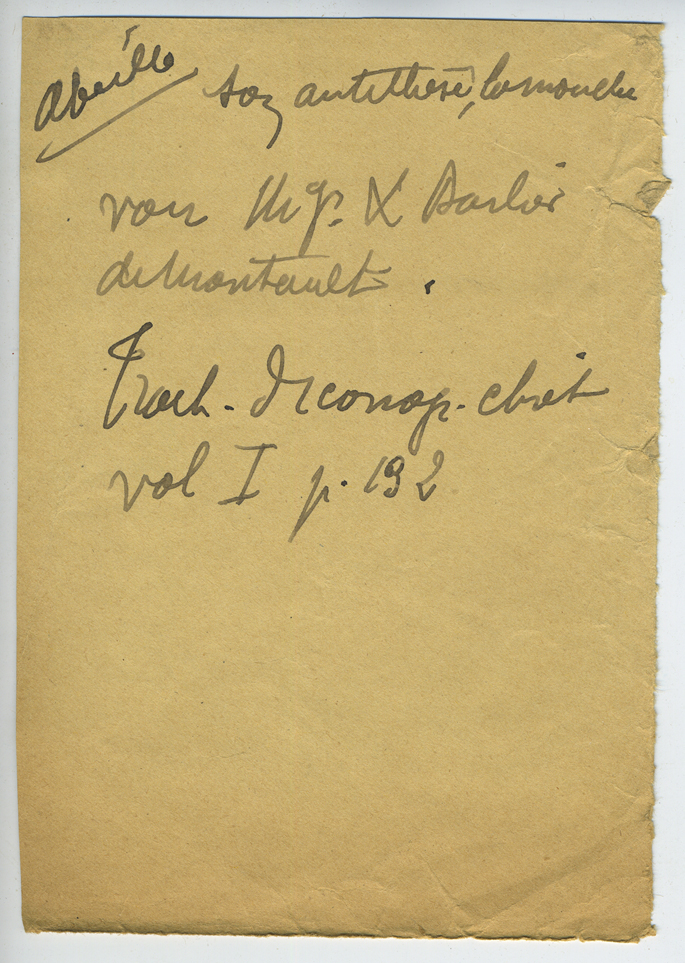 Abeille son antithèse, la mouche
voir Mgr. X Barbier
de Montault.
Trait. d'Iconogr. chrét
vol I p. 132